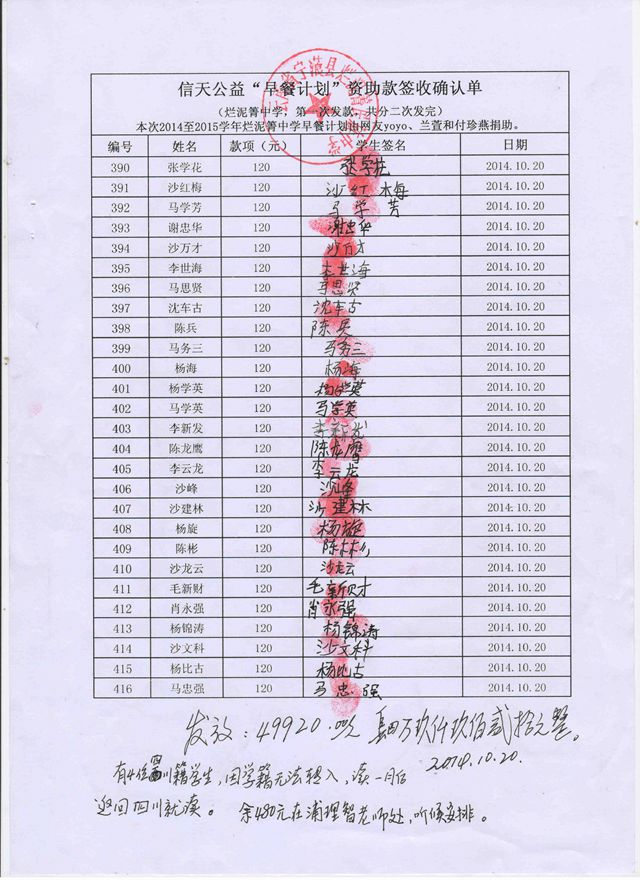 信天公益“早餐计划”资助款签收确认单
（烂泥箐中学，第一次发款，共分二次发完）
本次2014至2015学年烂泥箐中学早餐计划由网友yoyo、兰萱和付珍燕捐助。
编号 姓名 款项（元） 学生签名 日期
390 张学花 120 张学花 2014.10.20
391 沙红梅 120 沙红梅 2014.10.20
392 马学芳 120 马学芳 2014.10.20
393 谢忠华 120 谢忠华 2014.10.20
394 沙万才 120 沙万才 2014.10.20
395 李世海 120 李世海 2014.10.20
396 马思贤 120 马思贤 2014.10.20
397 沈车古 120 沈车古 2014.10.20
398 陈兵 120 陈兵 2014.10.20
399 马务三 120 马务三 2014.10.20
400 杨海 120 杨海 2014.10.20
401 杨学英 120 杨学英 2014.10.20
402 马学英 120 马学英 2014.10.20
403 李新发 120 李新发 2014.10.20
404 陈龙鹰 120 陈龙鹰 2014.10.20
405 李云龙 120 李云龙 2014.10.20
406 沙峰 120 沙峰 2014.10.20
407 沙建林 120 沙建林 2014.10.20
408 杨旋 120 杨旋 2014.10.20
409 陈彬 120 陈彬 2014.10.20
410 沙龙云 120 沙龙云 2014.10.20
411 毛新财 120 毛新财 2014.10.20
412 肖永强 120 肖永强 2014.10.20
413 杨锦涛 120 杨锦涛 2014.10.20
414 沙文科 120 沙文科 2014.10.20
415 杨比古 120 杨比古 2014.10.20
416 马忠强 120 马忠强 2014.10.20
发放：49920.00 肆万玖仟玖佰贰拾元整。
2014.10.20.
有4位四川籍学生，因学籍无法转入，读一月后
返回四川就读。 余480元在浦理智老师处，听候安排。